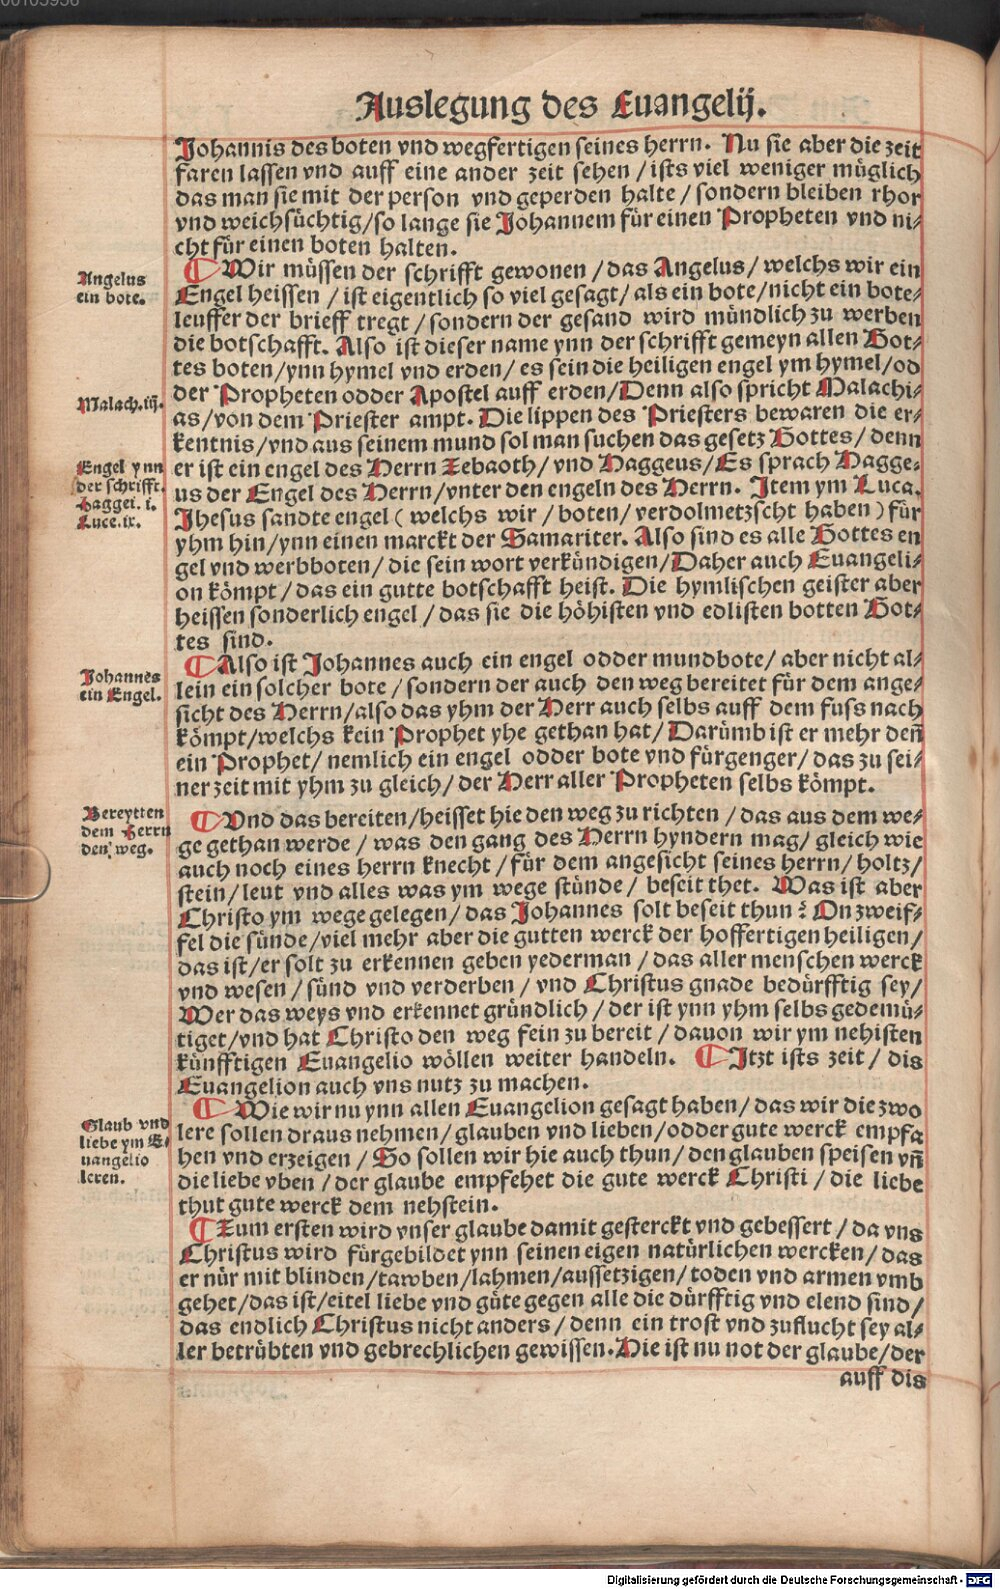 Auslegung des Euangelij.
Johannis des boten vnd wegfertigen seines herrn. Nu sie aber die zeit
faren lassen vnd auff eine ander zeit sehen / ists viel weniger müglich
das man sie mit der person vnd geperden halte / sondern bleiben rhor
vnd weichsüchtig/so lange sie Johannem für einen Propheten vnd ni⸗
cht für einen boten halten.
Angelus
ein bote.
¶ Wir müssen der schrifft gewonen / das Angelus / welchs wir ein
Engel heissen / ist eigentlich so viel gesagt/ als ein bote/nicht ein bote⸗
leuffer der brieff tregt / sondern der gesand wird mündlich zu werben
die botschafft. Also ist dieser name ynn der schrifft gemeyn allen Got⸗
tes boten/ynn hymel vnd erden/ es sein die heiligen engel ym hymel/od
der Propheten odder Apostel auff erden/Denn also spricht Malachi⸗
Malach.iij.
as/von dem Priester ampt. Die lippen des Priesters bewaren die er⸗
kentnis/vnd aus seinem mund sol man suchen das gesetz Gottes/ denn
Engel ynn
der schrifft.
Haggei. i.
Luce.ix.
er ist ein engel des Herrn Zebaoth/ vnd Haggeus/ Es sprach Hagge⸗
us der Engel des Herrn/vnter den engeln des Herrn. Item ym Luca.
Jhesus sandte engel ( welchs wir / boten / verdolmetzscht haben ) für
yhm hin/ynn einen marckt der Samariter. Also sind es alle Gottes en
gel vnd werbboten / die sein wort verkündigen/Daher auch Euangeli⸗
on kömpt / das ein gutte botschafft heist. Die hymlischen geister aber
heissen sonderlich engel / das sie die höhisten vnd edlisten botten Got⸗
tes sind.
Johannes
ein Engel.
¶ Also ist Johannes auch ein engel odder mundbote/ aber nicht al⸗
lein ein solcher bote / sondern der auch den weg bereitet für dem ange⸗
sicht des Herrn/also das yhm der Herr auch selbs auff dem fuss nach
kömpt/welchs kein Prophet yhe gethan hat/ Darümb ist er mehr deñ
ein Prophet/ nemlich ein engel odder bote vnd fürgenger / das zu sei⸗
ner zeit mit yhm zu gleich / der Herr aller Propheten selbs kömpt.
Bereytten
dem Herrn
den weg.
¶ Vnd das bereiten/heisset hie den weg zu richten / das aus dem we⸗
ge gethan werde / was den gang des Herrn hyndern mag/ gleich wie
auch noch eines herrn knecht / für dem angesicht seines herrn / holtz/
stein / leut vnd alles was ym wege stünde / beseit thet. Was ist aber
Christo ym wege gelegen / das Johannes solt beseit thun? On zweif⸗
fel die sünde/viel mehr aber die gutten werck der hoffertigen heiligen/
das ist/er solt zu erkennen geben yederman / das aller menschen werck
vnd wesen / sünd vnd verderben / vnd Christus gnade bedürfftig sey/
Wer das weys vnd erkennet gründlich / der ist ynn yhm selbs gedemü⸗
tiget/vnd hat Christo den weg fein zu bereit / dauon wir ym nehisten
künfftigen Euangelio wöllen weiter handeln. ¶ Itzt ists zeit / dis
Euangelion auch vns nutz zu machen.
Glaub vnd
liebe ym E⸗
uangelio
leren.
¶ Wie wir nu ynn allen Euangelion gesagt haben/ das wir die zwo
lere sollen draus nehmen / glauben vnd lieben/odder gute werck empfa
hen vnd erzeigen / So sollen wir hie auch thun/ den glauben speisen vñ
die liebe vben / der glaube empfehet die gute werck Christi / die liebe
thut gute werck dem nehstein.
¶ Zum ersten wird vnser glaube damit gesterckt vnd gebessert / da vns
Christus wird fürgebildet ynn seinen eigen natürlichen wercken / das
er nür mit blinden/tawben/lahmen/aussetzigen/ toden vnd armen vmb
gehet/das ist/eitel liebe vnd güte gegen alle die dürfftig vnd elend sind/
das endlich Christus nicht anders / denn ein trost vnd zuflucht sey al⸗
ler betrübten vnd gebrechlichen gewissen. Hie ist nu not der glaube/der
auff dis
Digitalisierung gefördert durch die Deutsche Forschungsgemeinschaft - DFG